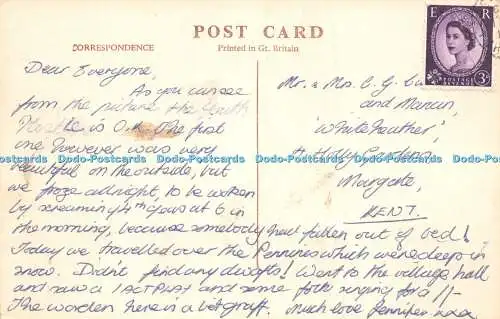 POST CARD
CORRESPONDENCE
Printed in Gt. Britain
E R
POSTAGE
REVENUE
3D
Dear Everyone,
As you can see
from the picture the Youth
Hostel is O.K. The first
one however was very
beautiful on the outside, but
we froze all night, to be woken
by screaming 4th years at 6 in
the morning, because somebody had fallen out of bed!
Today we travelled over the Pennines which were deep in
snow. Didn't find any dwarfs! Went to the village hall
and saw a 1 ACT PLAY and some folk singing for a 1/-
The warden here is a bit gruff. Much love Jennifer xxx
Mr. & Mrs. C. G.
and
'White Heather',
Holly Gardens,
Margate,
KENT.
Dodo-Postcards Dodo-Postcards Dodo-Postcards Dodo-Postcards Dodo-Postcards Dodo-Postcards